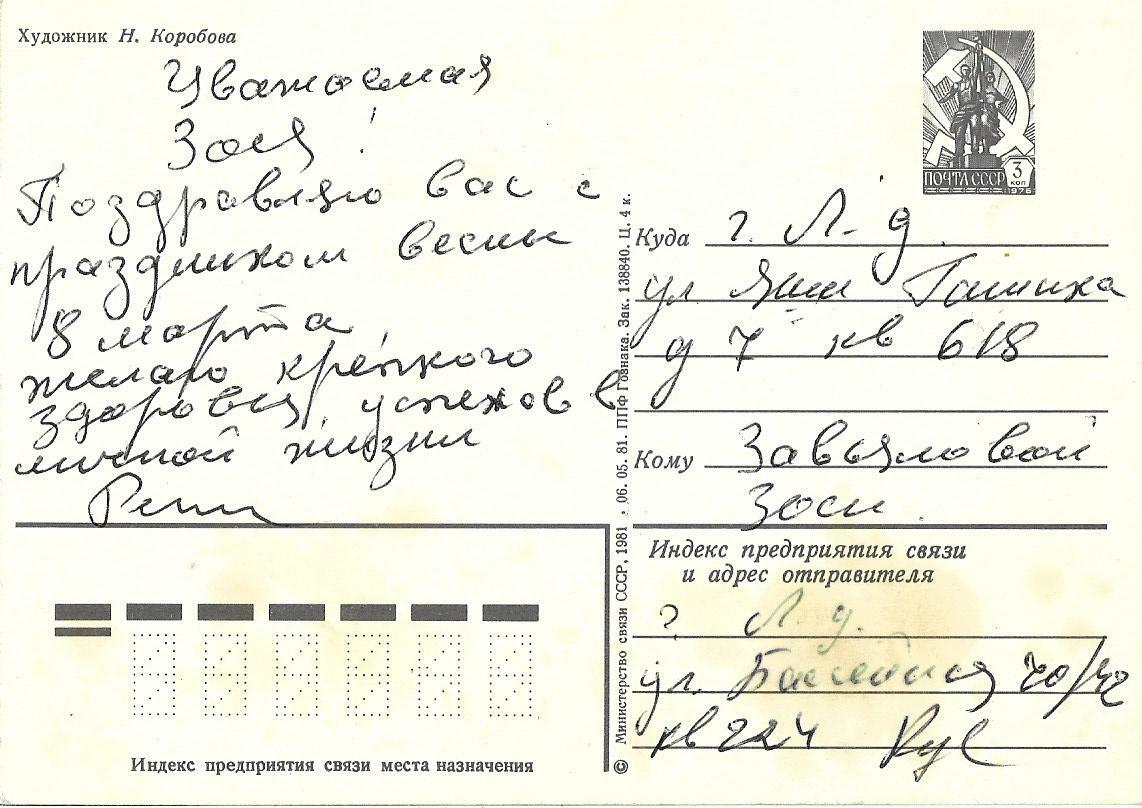 Художник Н. Коробова
Уважаемая
Зося!
Поздравляю вас с
праздником весны
8 марта
желаю крепкого
здоровья, успехов в
личной жизни
ПОЧТА СССР
3
коп
1976
Куда г. Л-д.
ул Яши
д 7 кв 618
Кому Завьяловой
Зоси.
Индекс предприятия связи
и адрес отправителя
г. Л д.
ул. Бассейная 70/42
кв 224
Индекс предприятия связи места назначения
© Министерство связи СССР, 1981 • 06. 05. 81. ППФ Гознака. Зак. 138840. Ц. 4 к.